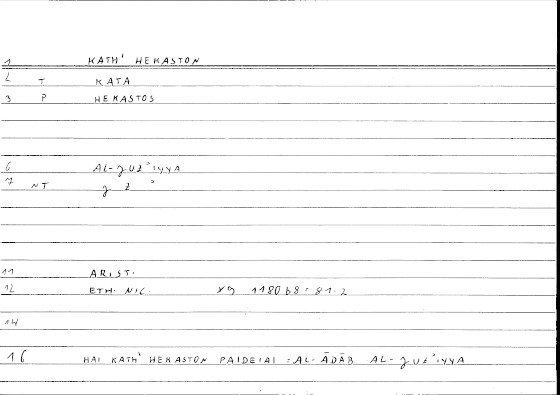 1 KATH' HEKASTON
2 T KATA
3 P HEKASTOS
6 AL-ǧUZ'IYYA
7 NT ǧ z '
11 ARIST.
12 ETH. NIC. X9 1180b8 : 81.2
14
16 HAI KATH' HEKASTON PAIDEIAI = AL-ĀDĀB AL-ǧUZ'IYYA